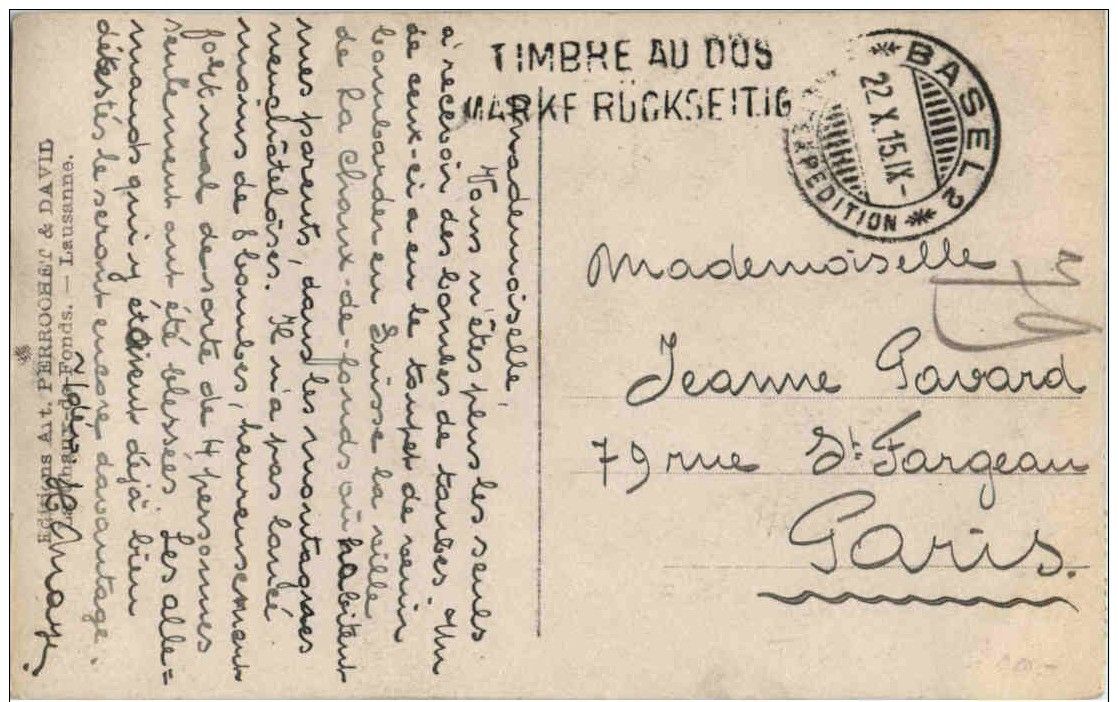 TIMBRE AU DOS
MARKE RÜCKSEITIG
BASEL 2
22.X.15.IX-
EXPEDITION
Mademoiselle,
Vous n'êtes plus les seuls
à recevoir des bombes de taubes. Un
de ceux-ci a eu le toupet de venir
bombarder en Suisse la ville
de La Chaux-de-fonds où habitent
mes parents, dans les montagnes
neuchâteloises. Il n'a pas lancé
moins de 8 bombes, heureusement
fort mal de sorte de 4 personnes
seulement ont été blessées. Les alle=
mands qui y étaient déjà bien
détestés le seront encore davantage.
Editions Art. PERROCHET & DAVID
La Chaux-de-Fonds. — Lausanne.
Mademoiselle
Jeanne Pavard
79 rue St Fargeau
Paris.
79